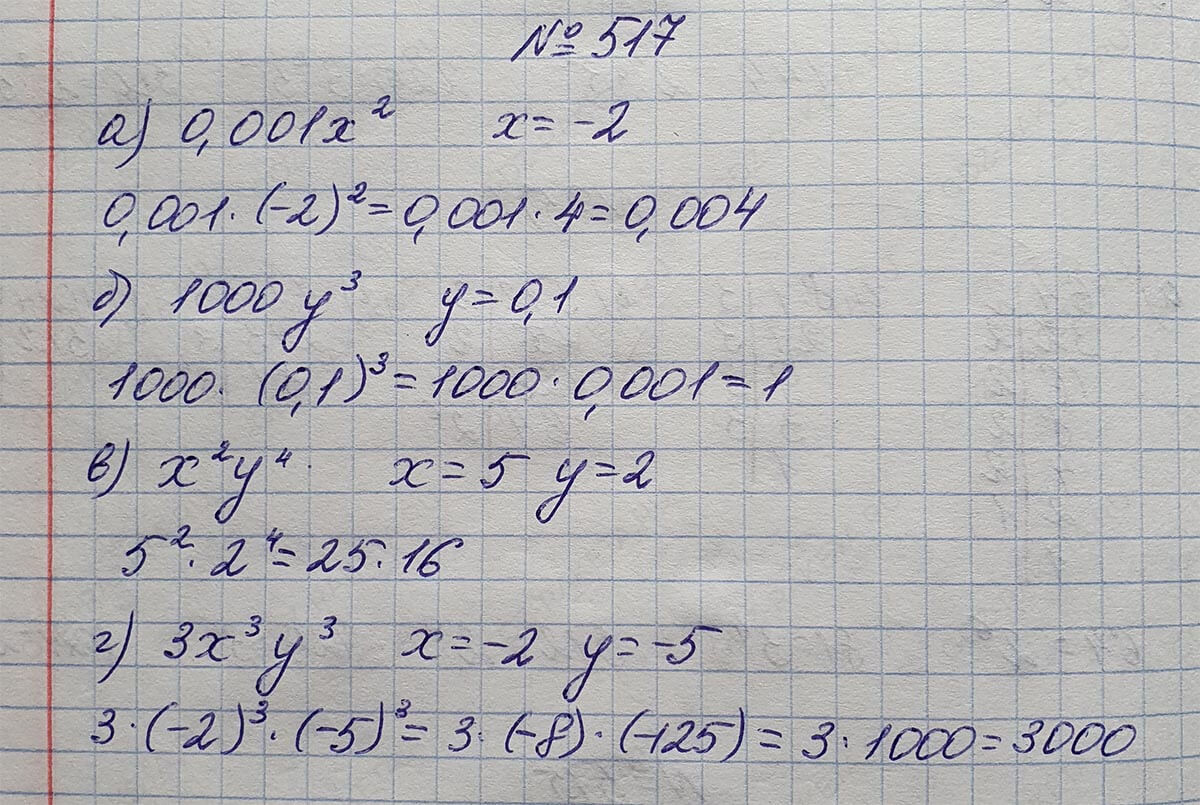 № 517
а) 0,001x² x = -2
0,001 · (-2)² = 0,001 · 4 = 0,004
б) 1000 y³ y = 0,1
1000 · (0,1)³ = 1000 · 0,001 = 1
в) x²y⁴ x = 5 y = 2
5² · 2⁴ = 25 · 16
г) 3x³y³ x = -2 y = -5
3 · (-2)³ · (-5)³ = 3 · (-8) · (-125) = 3 · 1000 = 3000